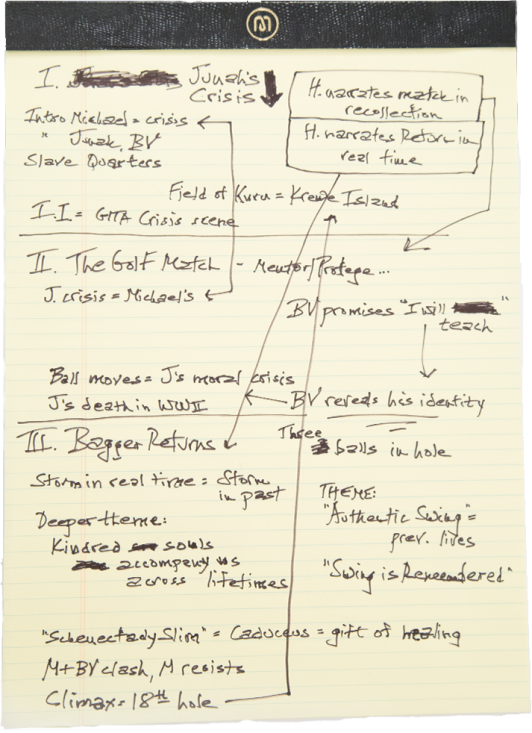 I. Junah's
Crisis
H. narrates match in
recollection
H. narrates Return in
real time
Intro Michael = crisis
" Junah, BV
Slave Quarters
Field of Kuru = Krewe Island
I.I = GITA Crisis scene
II. The Golf Match - Mentor/Protege...
J. crisis = Michael's
BV promises "I will
teach"
Ball moves = J's moral crisis
J's death in WWII
BV reveals his identity
III. Bagger Returns
Three
balls in hole
Storm in real time = Storm
in past
THEME:
"Authentic Swing" =
prev. lives
Deeper theme:
Kindred souls
accompany us
across lifetimes
"Swing is Remembered"
"Schenectady Slim" = Caduceus = gift of healing
M + BV clash, M resists
Climax = 18th hole